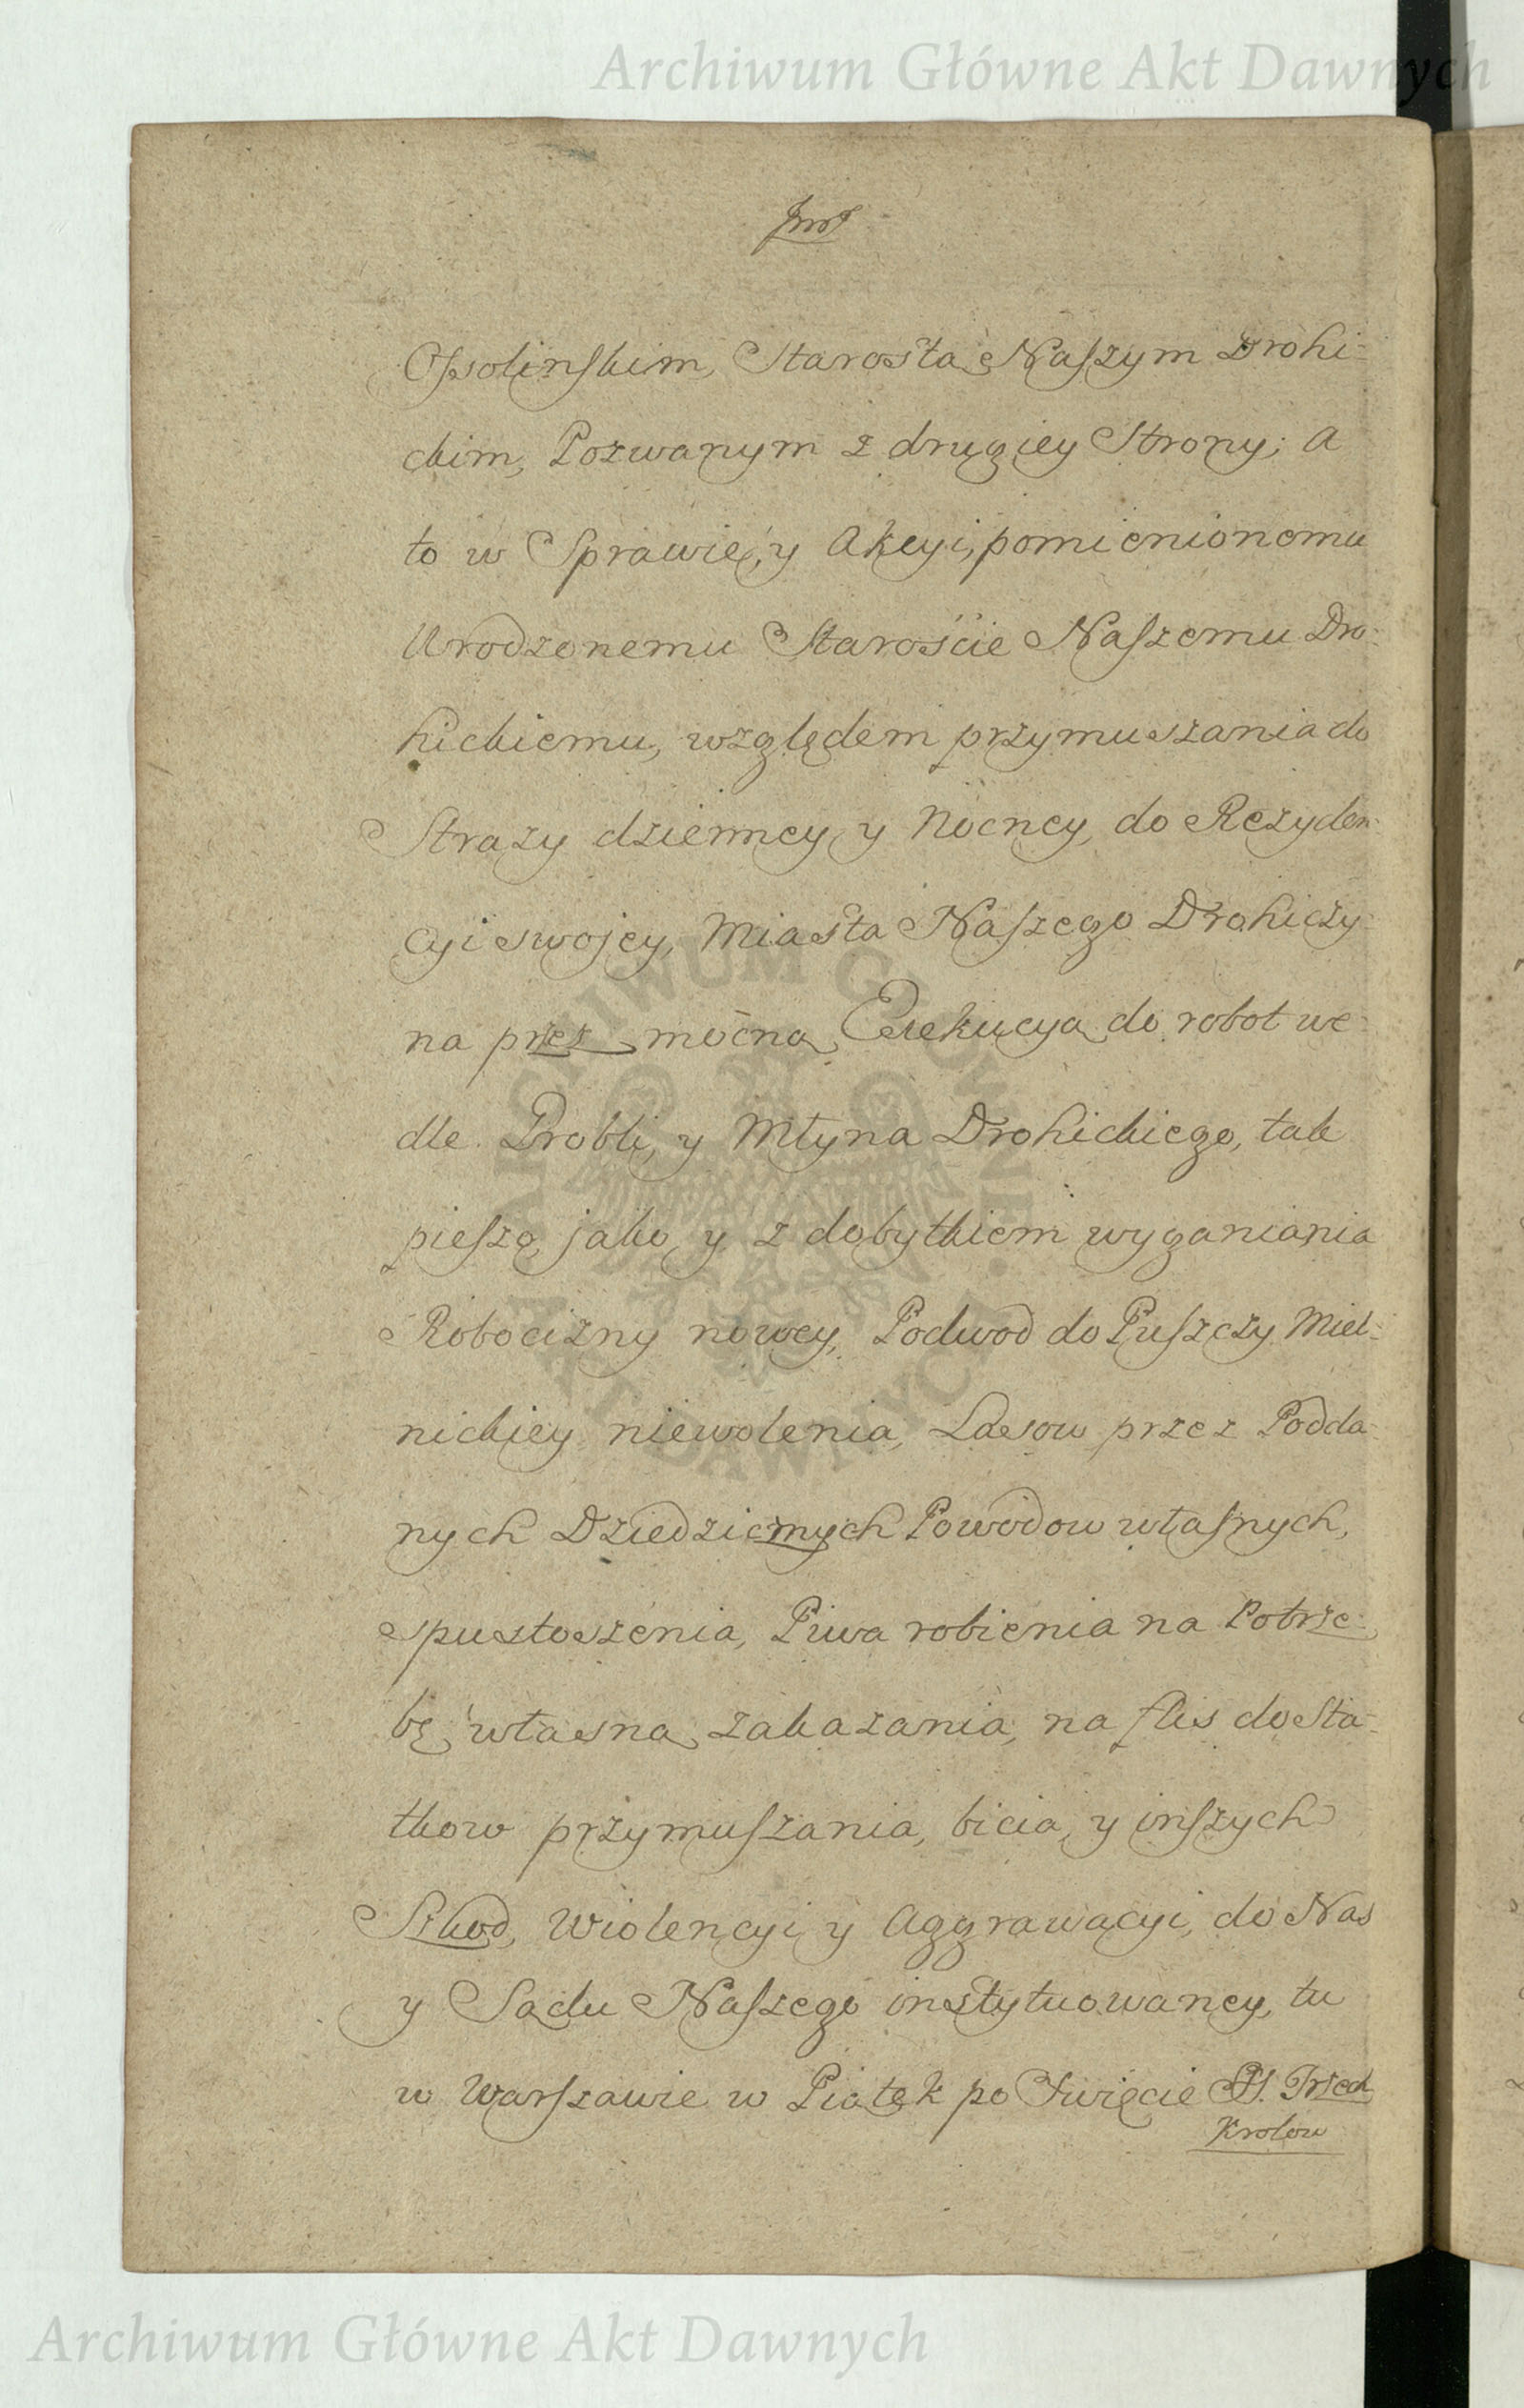 Archiwum Główne Akt Dawnych
Ossolinskim, Starostą Naszym Drohi-
ckim, Pozwanym z drugiey Strony; a
to w Sprawie, y Akcyi, pomienionemu
Urodzonemu Starościе Naszemu Dro-
hickiemu, względem przymuszania do
Straży dzienney y Nocney, do Rezyden-
cyi swojey, Miasta Naszego Drohiczy-
na przez mocną Exekucyą do robot we-
dle Grobli, y Młyna Drohickiego, tak
pieszo, jako y z dobytkiem wyganiania
Robocizny nowey, Podwod do Puszczy Miel-
nickiey niewolenia, Lasow przez Podda-
nych Dziedzicznych Powodow własnych,
spustoszenia, Piwa robienia na Potrze-
bę własną zakazania, na flis do Sta-
tkow przymuszania, bicia, y inszych
Szkod, Wiolencyi y Aggrawacyi, do Nas
y Sądu Naszego instytuowaney, tu
w Warszawie w Piątek po Swięcie SS. Trzech
Krolow
ARCHIWUM GŁÓWNE
AKT DAWNYCH
Archiwum Główne Akt Dawnych